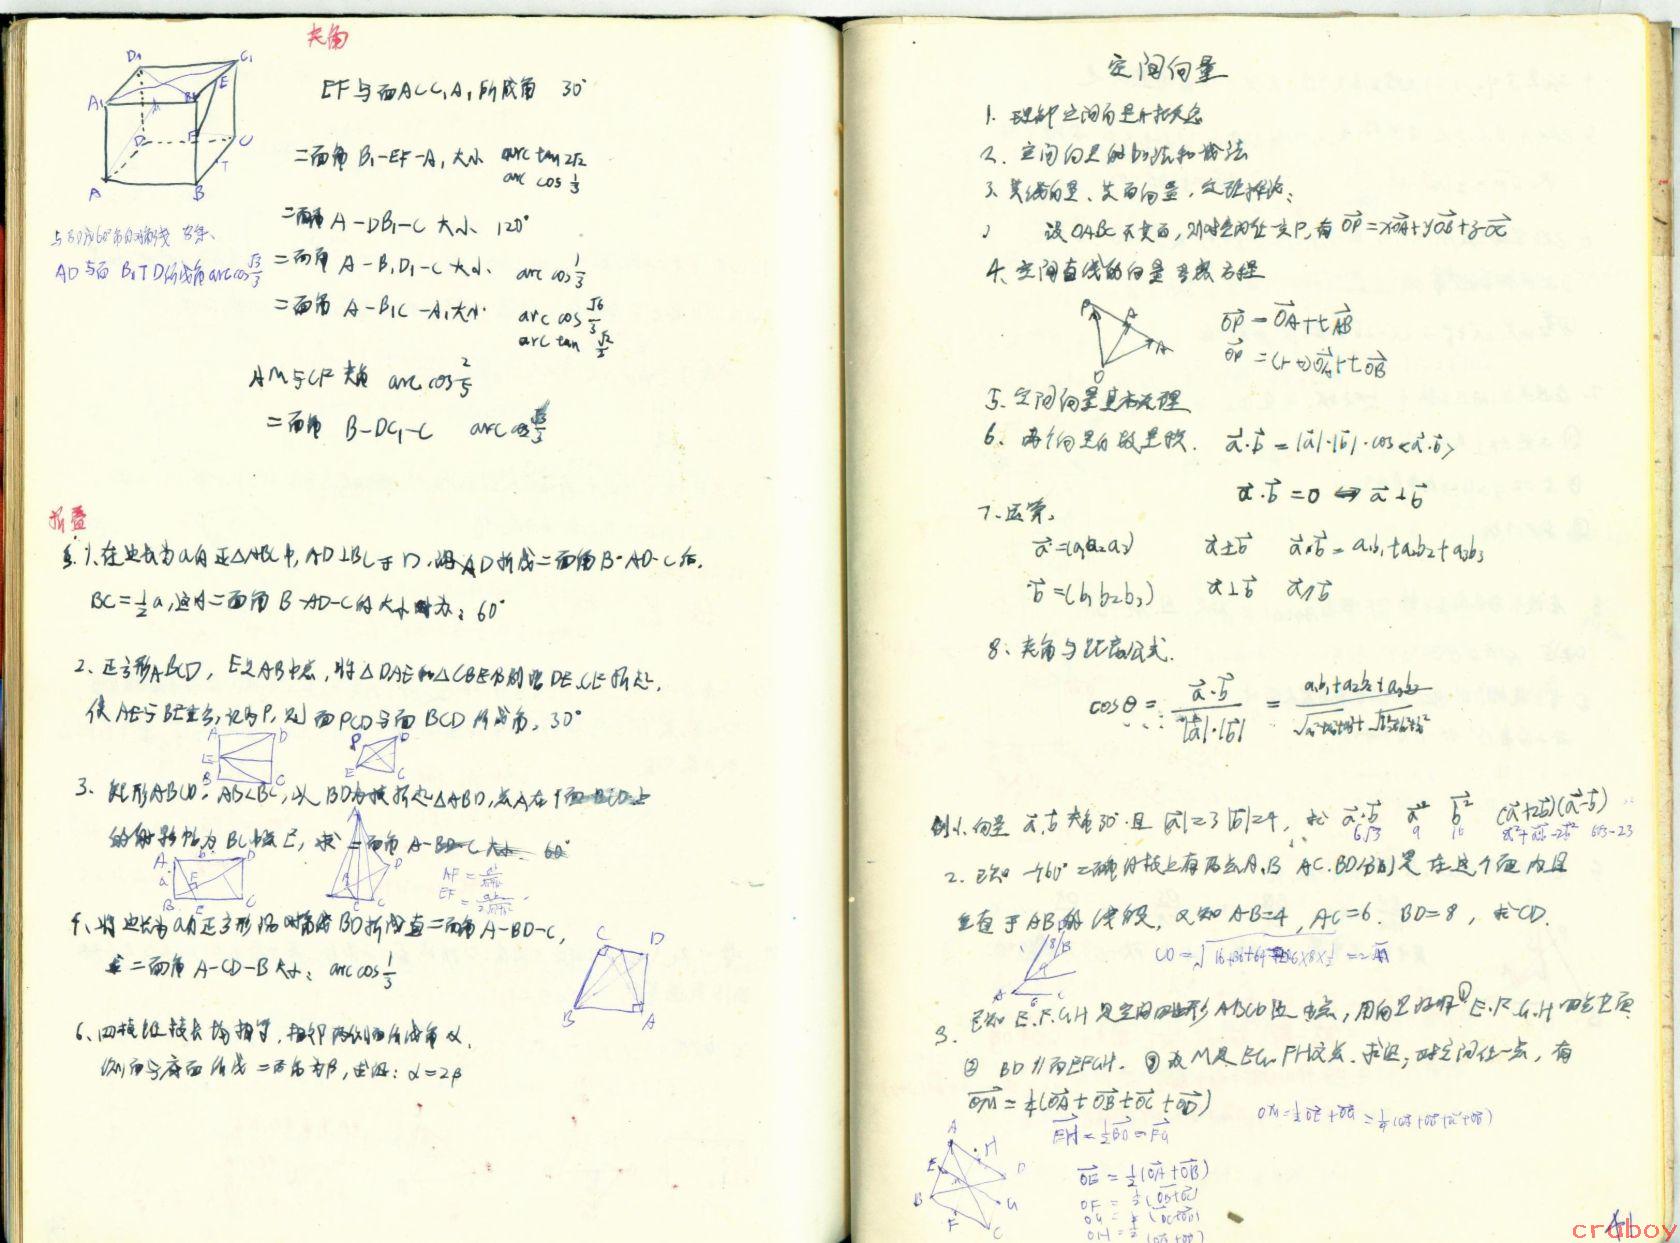 夹角
EF与面ACC₁A₁所成角 30°
二面角 B₁-EF-A₁ 大小 arc tan 2√2
arc cos 1/3
二面角 A-DB₁-C 大小 120°
与BD成60°角的对角线
AD与面B₁TD所成角 arc cos √3/3
二面角 A-B₁D₁-C 大小 arc cos 1/3
二面角 A-B₁C-A₁ 大小 arc cos √6/3
arc tan √2/2
AM与CF夹角 arc cos 2/5
二面角 B-DC₁-C arc cos √3/3
折叠
1、在边长为a的正△ABC中,AD⊥BC于D,沿AD折成二面角B-AD-C后,
BC=1/2a,这时二面角B-AD-C的大小为:60°
2、正方形ABCD,E是AB中点,将△DAE和△CBE分别沿DE、CE折起,
使AE与BE重合,记为P,则面PCD与面BCD所成角,30°
3、矩形ABCD,AB<BC,以BD为棱折起△ABD,点A在
的射影恰为BC中点E,求二面角A-BD-C大小 60°
AF=
EF=
4、将边长为a的正方形沿对角线BD折成直二面角A-BD-C,
求二面角A-CD-B大小:arc cos 1/3
6、四棱锥棱长均相等,相邻两侧面所成角α,
侧面与底面所成二面角为β,求证:α=2β
空间向量
1、理解空间向量的概念
2、空间向量的加法和减法
3、共线向量、共面向量,定理推论:
设OABC不共面,则对空间任一点P,有 OP=xOA+yOB+zOC
4、空间直线的向量参数方程
OP=OA+tAB
OP=(1-t)OA+tOB
5、空间向量基本定理
6、两个向量的数量积. a·b=|a|·|b|·cos<a·b>
a·b=0⇔a⊥b
7、运算.
a=(a₁a₂a₃) a±b a·b=a₁b₁+a₂b₂+a₃b₃
b=(b₁b₂b₃) a⊥b a∥b
8、夹角与距离公式.
cosθ= a·b/|a|·|b| = a₁b₁+a₂b₂+a₃b₃
例1、向量a,b夹角30°且|a|=3 |b|=4,求 a·b a² b² (a+2b)(a-b)
6√3 9 16 a²+ab-2b² 6√3-23
2、已知一个60°二面角的棱上有两点A、B AC、BD分别是在这个面内且
垂直于AB的线段,又知AB=4,AC=6,BD=8,求CD.
3、已知E.F.G.H是空间四边形ABCD边中点,用向量法证①E.F.G.H四点共面
② BD∥面EFGH. ③设M是EG、FH交点.求证:对空间任一点,有
OM=1/4(OA+OB+OC+OD)
EH=1/2BD=FG
OE=1/2(OA+OB)
OF=1/2(OB+OC)
OG=1/2(OC+OD)
OH=1/2(OA+OD)
41
craboy